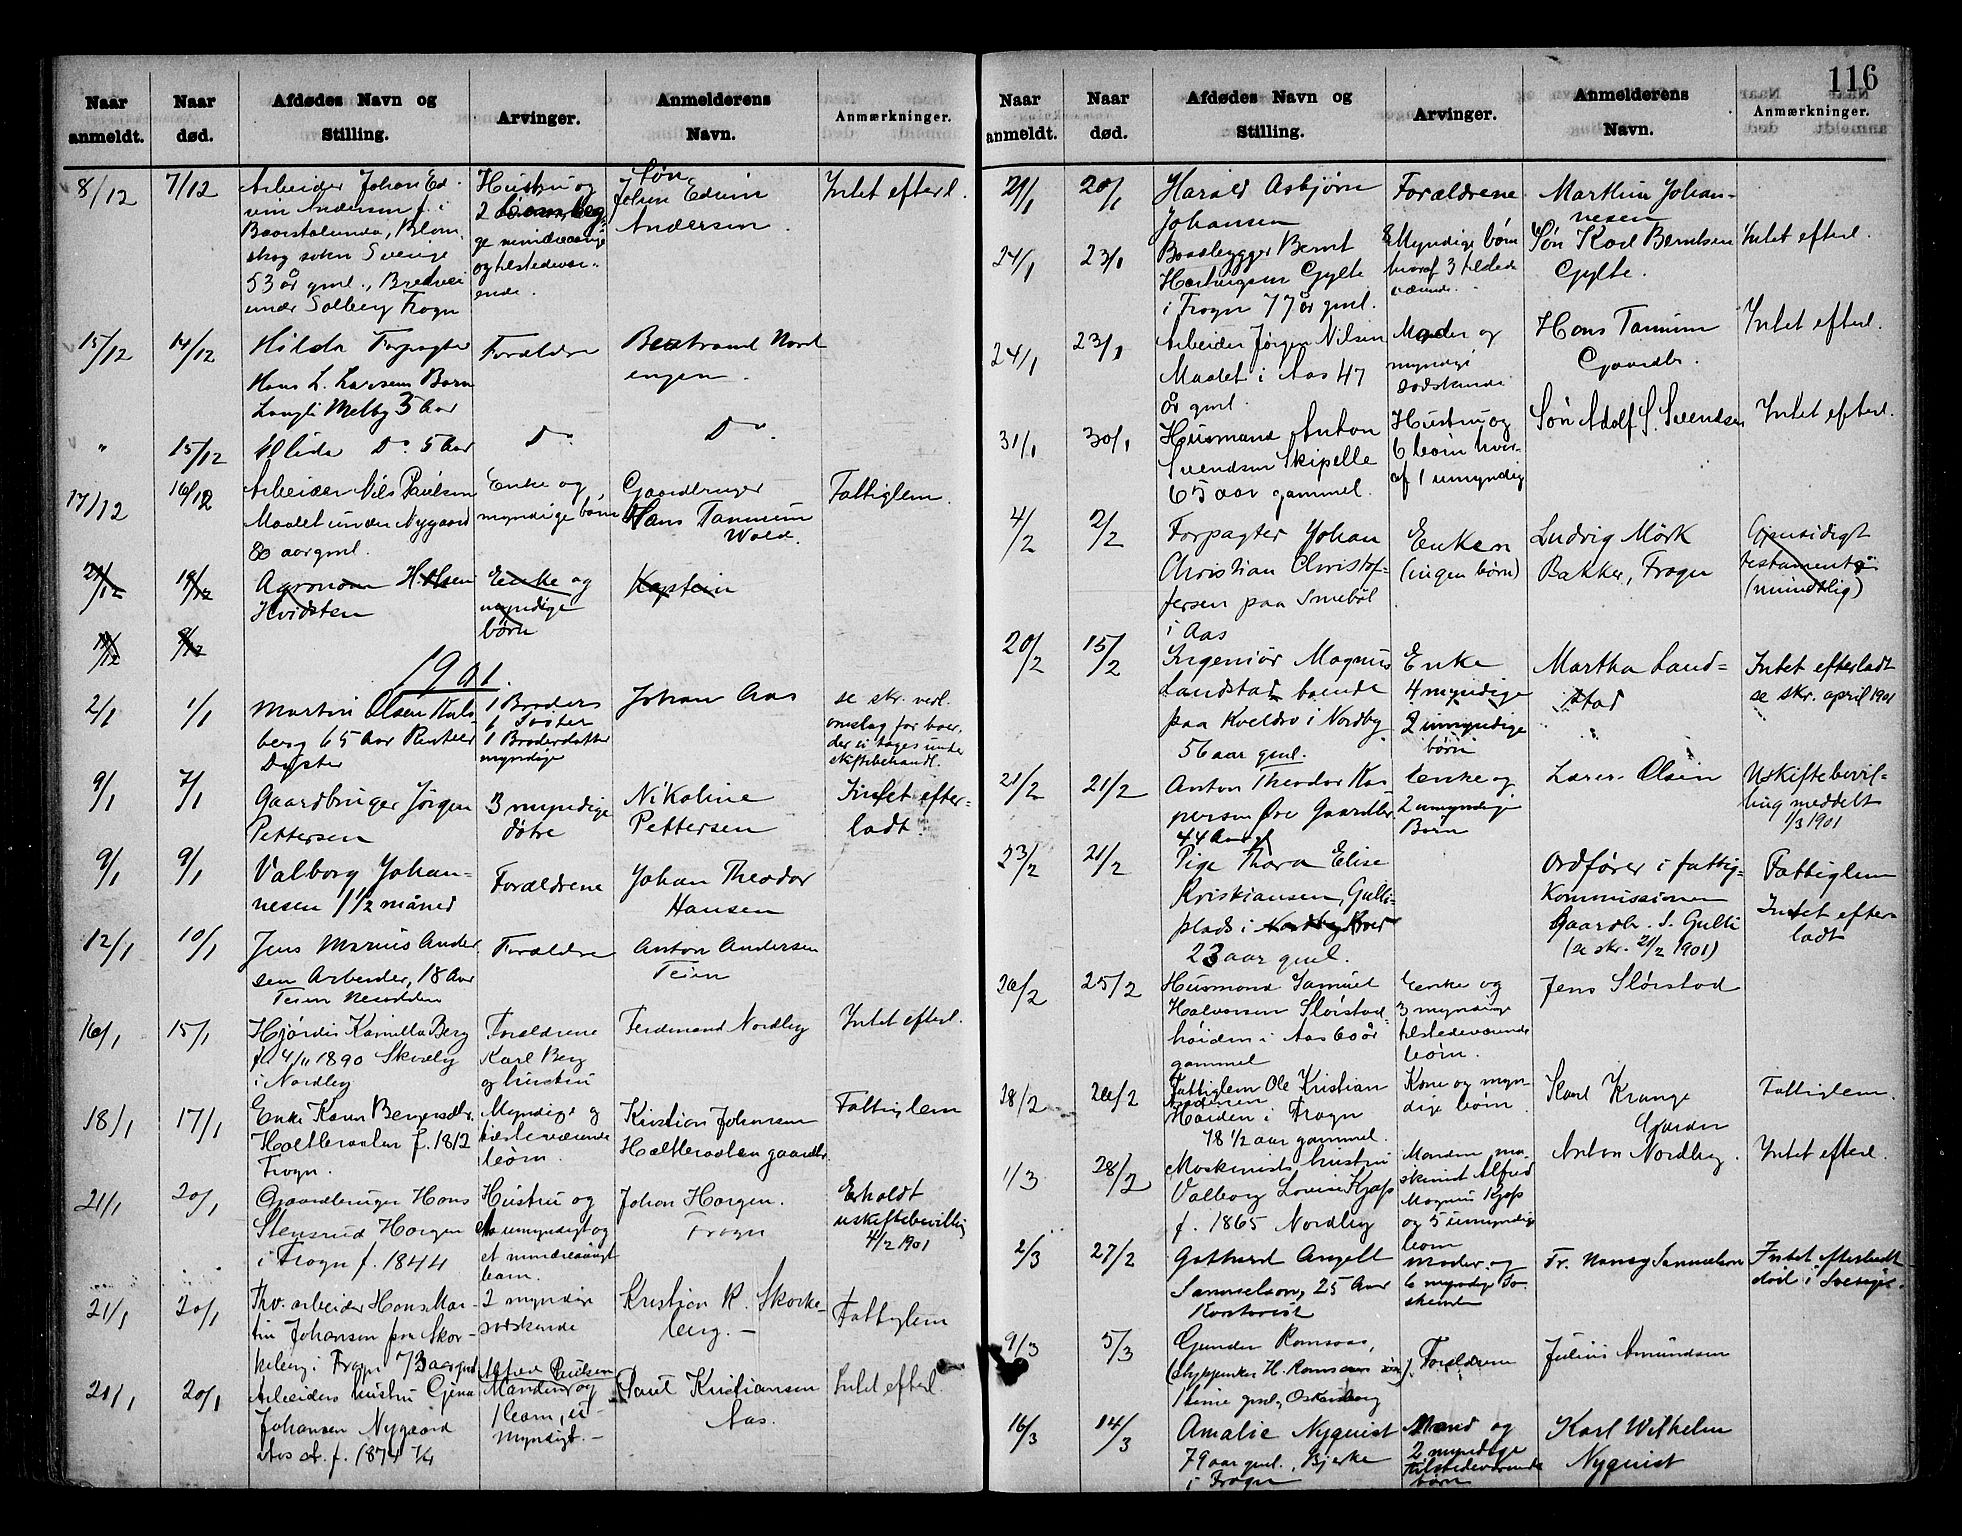 116
Naar anmeldt. Naar død. Afdødes Navn og Stilling. Arvinger. Anmelderens Navn. Anmærkninger.
8/12 7/12 Arbeider Johan Ed- Hustru og Søn Intet efterl.
vin Andersen f. i 2 Johan Edvin
Blom- ge mindreaarige Andersen
skog sokn Sverige og tilstedevær-
53 år gml., Bredvei ende.
under Solberg Frogn
15/12 14/12 Hilda Forpagter Forældre Bertrand Nord
Hans L. Larsens Barn engen.
Langli Melby 3 Aar
" 15/12 Alida Do 5 Aar Do Do
17/12 16/12 Arbeider Nils Paulsen Enke og Gaardbruger Fattiglem.
Maalet under Nygaard myndige børn Hans Tannum
80 aar gml. Wold.
21/12 19/12 Agronom H. Olsen Enke og Kaptein
Hvidsten myndige
børn
1901.
2/1 1/1 Martin Olsen Kals- 1 Broders Johan Aas se skr. vedl.
berg 65 Aar Rentier 6 Søster omslag for boer,
Dyster 1 Broderdatter der ei tages under
myndige skiftebehandl.
9/1 7/1 Gaardbruger Jørgen 3 myndige Nikoline Intet efter-
Pettersen døtre Pettersen ladt.
9/1 9/1 Valborg Johan- Forældrene Johan Theodor
nesen 1 1/2 måned Hansen
12/1 10/1 Jens Marius Ander Forældre Anton Andersen
sen Arbeider, 18 Aar Teien
Teien Nesodden
16/1 15/1 Hjørdis Kamilla Berg Forældrene Ferdinand Nordby Intet efterl.
fd 4/11 1890 Skovly Karl Berg
i Nordby og hustru
18/1 17/1 Enke Karen Bergersdtr. Myndige og Kristian Johansen Fattiglem
Holtbraaten f. 1812 tilstedeværende Holtbraaten gaardbr.
Frogn. børn.
21/1 20/1 Gaardbruger Hans Hustru og Johan Horgen. Erholdt
Stensrud Horgen umyndigt og Frogn uskiftebevilling
i Frogn f. 1844 et mindreaarigt 4/2 1901
barn.
21/1 20/1 Thv. arbeider Hans Mar- 2 myndige Kristian R. Skorke- Fattiglem
tin Johansen paa Skor- sødskende berg. —
keberg i Frogn 73 aar gml
21/1 20/1 Arbeiders hustru Gina Alfred Paulsen Paul Kristiansen Intet efterl.
Johansen Nygaard Manden og Aas.
Aas f. 1874 1 barn, u-
myndigt. —
Naar anmeldt. Naar død. Afdødes Navn og Stilling. Arvinger. Anmelderens Navn. Anmærkninger.
21/1 20/1 Harald Asbjørn Forældrene Marthin Johan-
Johansen nesen
24/1 23/1 Baadbygger Bernt 8 Myndige børn Søn Karl Berntsen Intet efterl.
Hartvigsen Gylte hvoraf 3 tilstede Gylte.
i Frogn 77 år gml. værende.
24/1 23/1 Arbeider Jørgen Nilsen Moder og Hans Tannum Intet efterl.
Maalet i Aas 47 myndige Gaardbr.
år gml. sødskende
31/1 30/1 Husmand Anton Hustru og Søn Adolf S. Svendsen Intet efterl.
Svendsen Skipelle 6 børn hvor-
65 aar gammel. af 1 umyndig
4/2 2/2 Forpagter Johan Enken Ludvig Mørk Gjensidigt
Christian Christof- (ingen børn) Bakker, Frogn testament
fersen paa Smebøl (mundtlig)
i Aas
20/2 15/2 Ingeniør Magnus Enke Martha Land= Intet efterladt
Landstad boende 4 myndige stad se skr. april 1901
paa Kveldro i Nordby 2 umyndige
56 aar gml. børn
21/2 21/2 Anton Theodor Kas Enke og Lærer Olsen Uskiftebevil-
persen Øvr Gaardbr 2 umyndige ling meddelt
44 Aar gl Børn 1/3 1901
23/2 21/2 Pige Thora Elise Ordfører i fattig- Fattiglem
Kristiansen, Gulli- Kommissionen Intet efter
plads i Nordby 23 aar gml. Gaardb. S. Gulli ladt
(se skr. 21/2 1901)
26/2 25/2 Husmand Samuel Enke og Jens Slørstad
Halvorsen Slørstad- 3 myndige
høiden i Aas 60 år tilstedeværende
gammel børn.
28/2 26/2 Fattiglem Ole Kristian Kone og myn- Karl Krange Fattiglem.
Andersen dige børn. Garder
Haiden i Frogn
78 1/2 aar gammel.
1/3 28/2 Maskinists hustru Manden ma- Anton Nordby. Intet efterl.
Valborg Lovise Kjøs skinist Alfred
f. 1865 Nordby Magnus Kjøs
og 5 umyndige
børn
2/3 27/2 Gotthard Angell Moder og Fr. Nancy Samuelson Intet efterladt
Samuelson, 25 Aar 6 myndige Sø- død i Sverige.
Kontorist skende
9/3 5/3 Gunder Romsaas, Forældrene Julius Amundsen
H. Romsaas søn)
1 time gml, Oskarsborg
16/3 14/3 Amalie Nyquist Mand og Karl Wilhelm
79 aar gml., Bjerke 2 myndige Nyquist
i Frogn tilstedeværende
børn